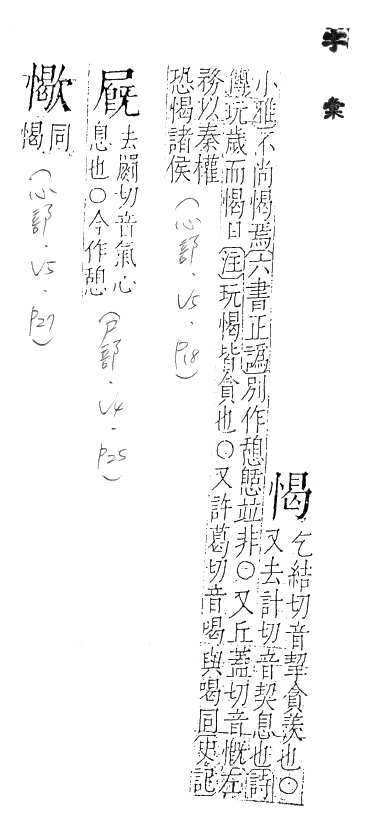 字彙
愒
乞結切音挈貪羨也○
又去計切音契息也詩
小雅不尚愒焉六書正譌別作憩憇並非○又丘蓋切音慨左
傳玩歲而愒日注玩愒皆貪也○又許葛切音喝與喝同史記
務以秦權
恐愒諸侯
(心部.V5.P18)
㞃
去罽切音氣心
息也○今作憩
(戶部.V4.P25)
㦣
同
愒
(心部.V5.P27)